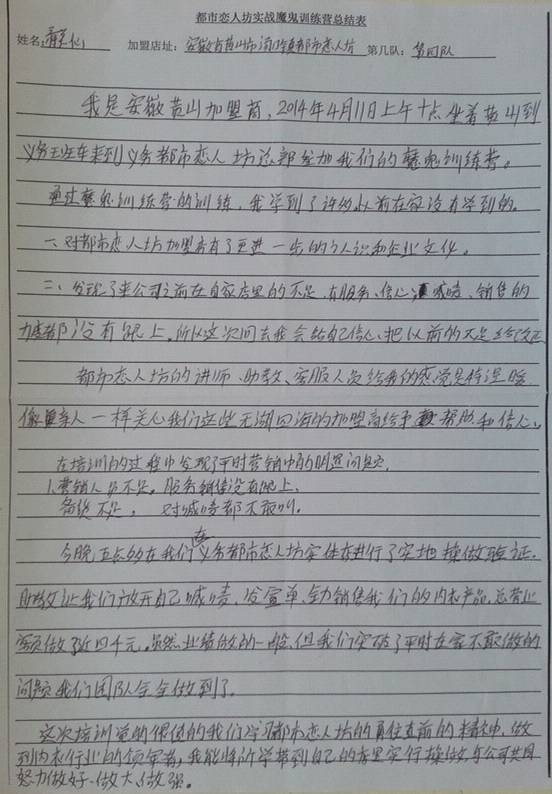 都市恋人坊实战魔鬼训练营总结表
姓名: 加盟店址: 安徽省黄山市汤口镇都市恋人坊 第几队: 第四队
我是安徽黄山加盟商，2014年4月11日上午十点坐着黄山到
义乌班车来到义乌都市恋人坊总部参加我们的魔鬼训练营。
通过魔鬼训练营的训练，我学到了许多以前在家没有学到的。
一、对都市恋人坊加盟商有了更进一步的认识和企业文化。
二、发现了来公司之前在自家店里的不足，有服务、信心、喊麦、销售的
力度都没有跟上。所以这次回去我会给自己信心，把以前的不足给改正
都市恋人坊的讲师、助教、客服人员给我的感觉是特温暖
像亲人一样关心我们这些五湖四海的加盟商给予帮助和信心。
在培训的过程中发现了平时营销中的明显问题。
1.营销人员不足。服务销售没有跟上。
备货不足。 对喊麦都不敢叫。
今晚五点多在我们在义乌都市恋人坊实体店进行了实地操做验证。
助教让我们放开自己喊麦、发宣单、全力销售我们的内衣产品，总营业
额做了近四千元。虽然业绩做的一般，但我们突破了平时在家不敢做的
问题我们团队全全做到了。
这次培训 的 我们学习都市恋人坊的勇往直前的精神。做
到内衣行业的领军者，我能将所学带到自己的店里实行操做，与公司共同
努力做好、做大、做强。